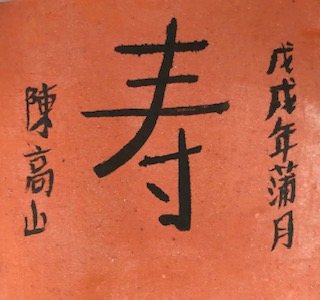 戊戌年蒲月
寿
陳高山